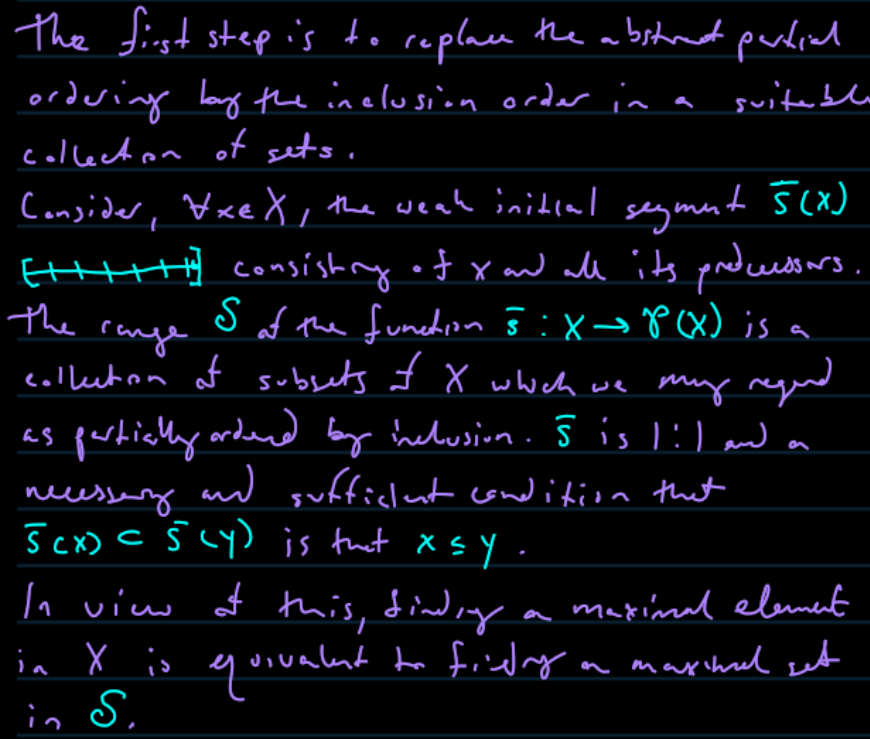 The first step is to replace the abstract partial
ordering by the inclusion order in a suitable
collection of sets.
Consider, ∀x∈X, the weak initial segment s̄(x)
consisting of x and all its predecessors.
The range S of the function s̄ : X → P(X) is a
collection of subsets of X which we may regard
as partially ordered by inclusion. s̄ is 1:1 and a
necessary and sufficient condition that
s̄(x) ⊂ s̄(y) is that x ≤ y.
In view of this, finding a maximal element
in X is equivalent to finding a maximal set
in S.